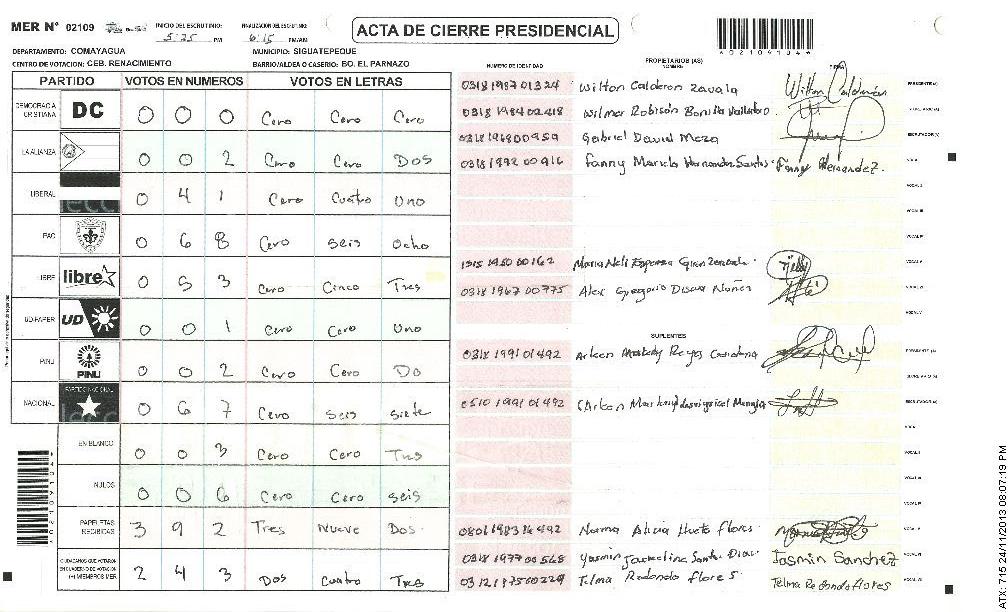 MER N° 02109
INICIO DEL ESCRUTINIO:
5:25 PM
FINALIZACION DEL ESCRUTINIO:
6:15 PM/AM
ACTA DE CIERRE PRESIDENCIAL
DEPARTAMENTO: COMAYAGUA
MUNICIPIO: SIGUATEPEQUE
CENTRO DE VOTACION: CEB. RENACIMIENTO
BARRIO/ALDEA O CASERIO: BO. EL PARNAZO
PARTIDO VOTOS EN NUMEROS VOTOS EN LETRAS
DEMOCRACIA CRISTIANA DC 0 0 0 Cero Cero Cero
LA ALIANZA 0 0 2 Cero Cero Dos
LIBERAL 0 4 1 Cero Cuatro Uno
PAC 0 6 8 Cero Seis Ocho
LIBRE libre 0 5 3 Cero Cinco Tres
UD-FAPER UD 0 0 1 Cero Cero Uno
PINU PINU 0 0 2 Cero Cero Do
NACIONAL PARTIDO NACIONAL 0 6 7 Cero Seis Siete
EN BLANCO 0 0 3 Cero Cero Tres
NULOS 0 0 6 Cero Cero Seis
PAPELETAS RECIBIDAS 3 9 2 Tres Nueve Dos
CIUDADANOS QUE VOTARON EN CUADERNO DE VOTACION (+) MIEMBROS MER 2 4 3 Dos Cuatro Tres
NUMERO DE IDENTIDAD
PROPIETARIOS (AS)
NOMBRE
FIRMA
0318 1987 01324 Wilton Calderon Zavala Wilton Calderón PRESIDENTE(A)
0318 1984 02418 Wilmer Robison Bonilla SECRETARIO(A)
0318 1968 00959 Gabriel David Meza ESCRUTADOR(A)
0318 1992 00916 Fanny Mariela Hernandez Santos Fanny Hernandez. VOCAL I
VOCAL II
VOCAL III
VOCAL IV
1515 1950 00162 Maria Neli VOCAL V
0318 1967 00775 Alex Gregorio Discua Nuñez VOCAL VI
SUPLENTES
0318 1991 01492 Reyes Cardona PRESIDENTE (A)
SECRETARIO (A)
0510 1991 01492 ESCRUTADOR(A)
0801 1983 14492 Norma Alicia Flores
0318 1977 00568 Yasmin Jasmin Sanchez
0312 1975 00229 Telma Redondo Flores Telma Redondo flores
*02109104*
ATX: 715 24/11/2013 08:07:19 PM